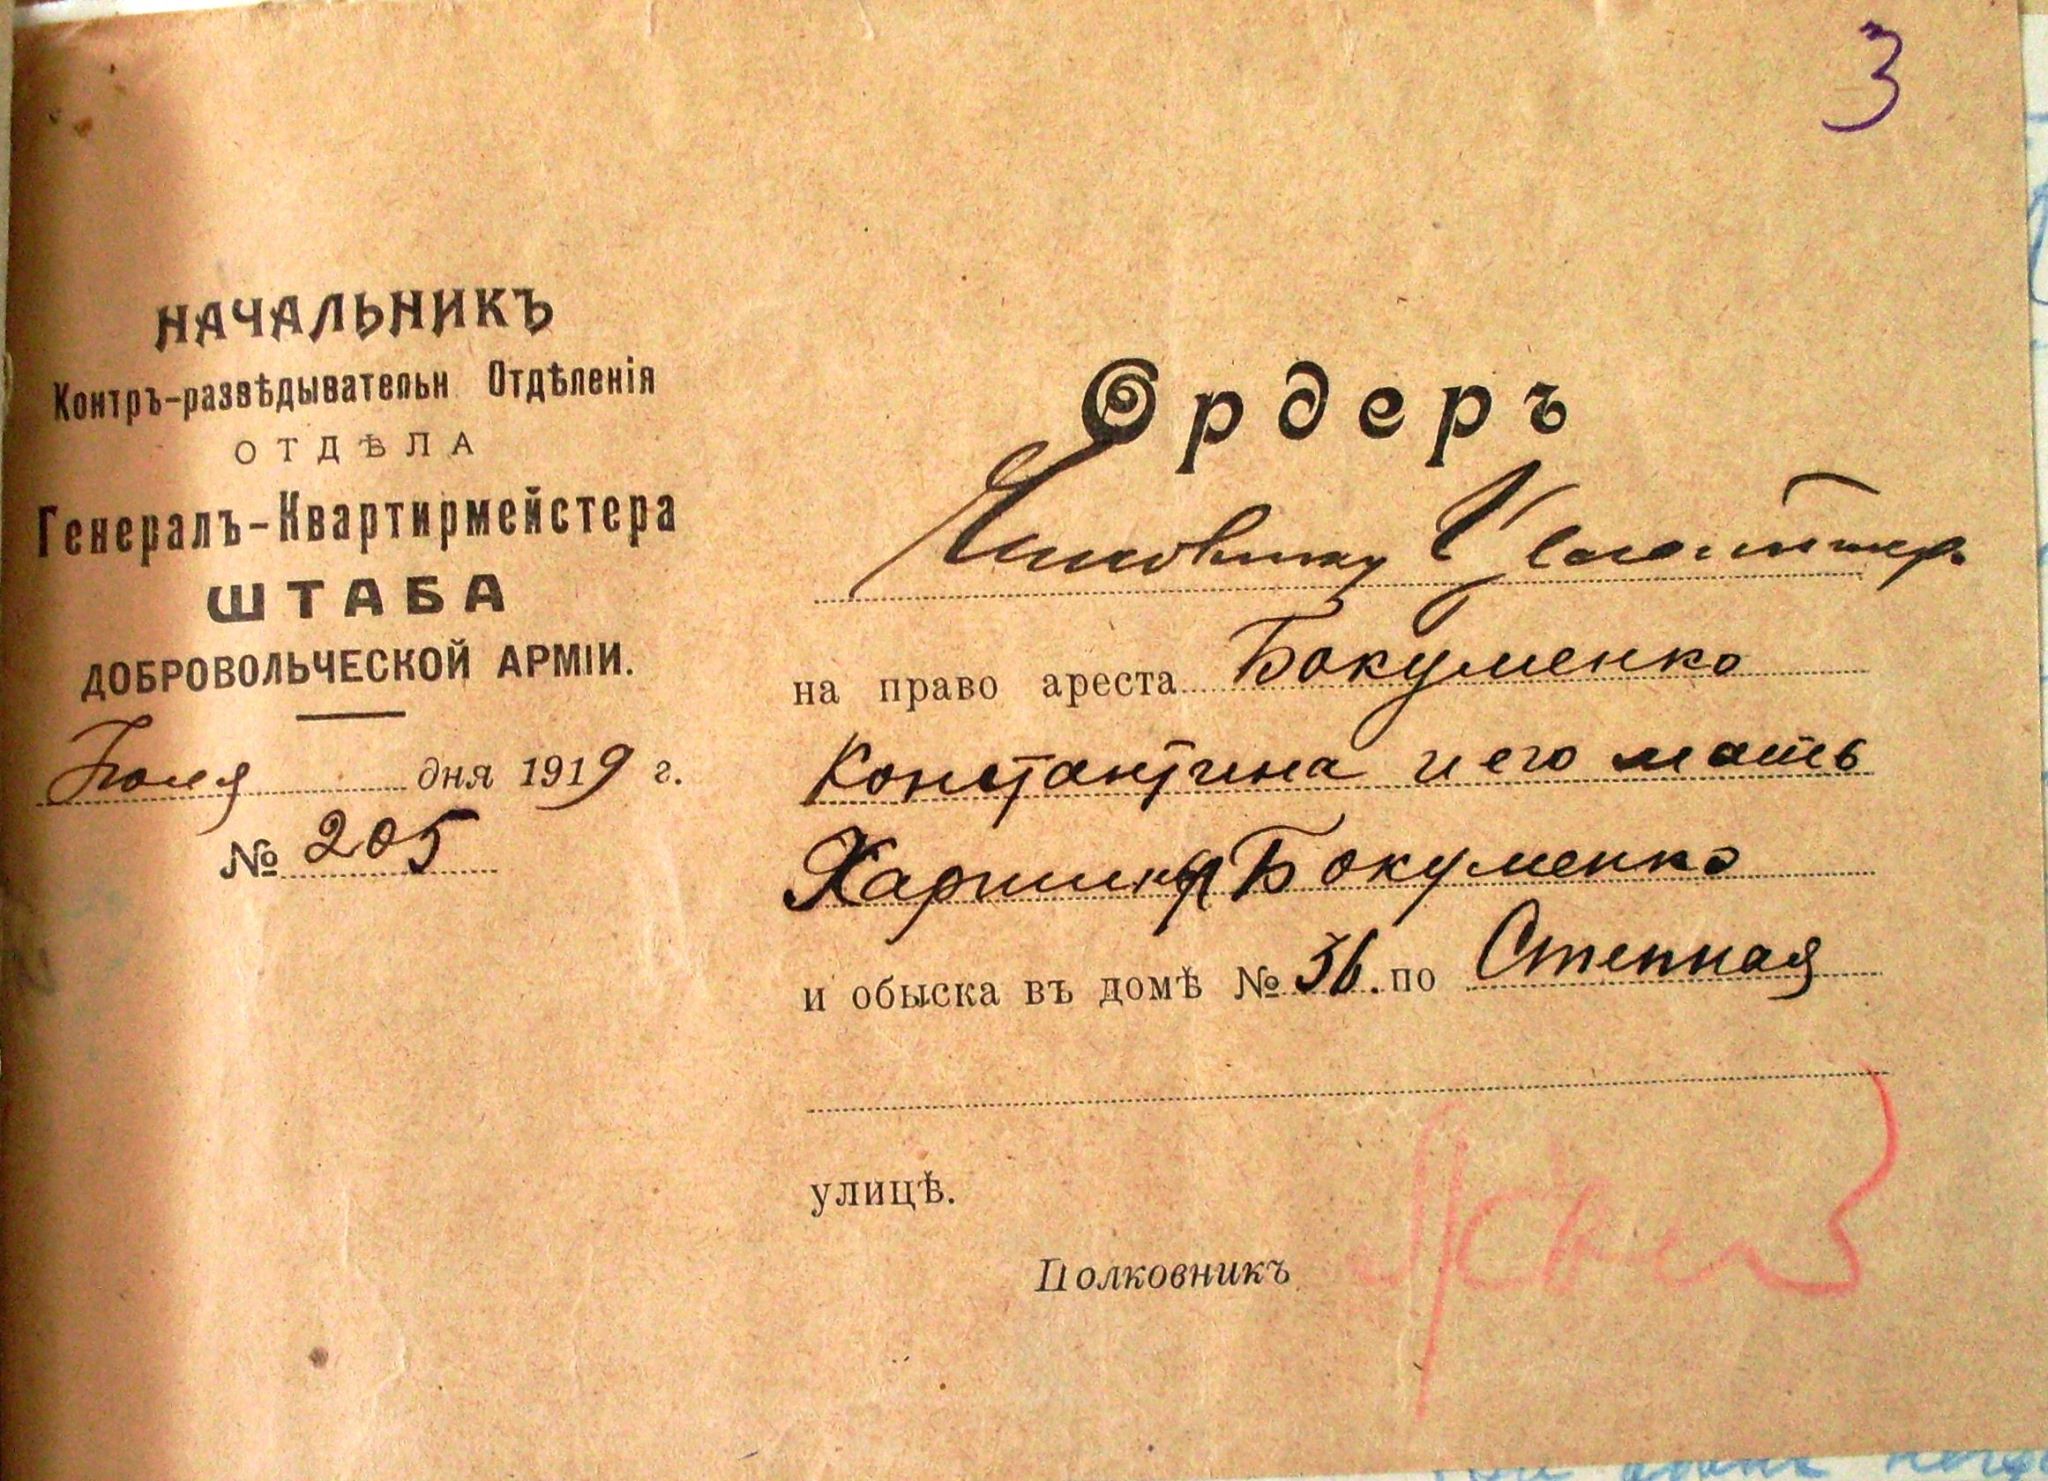 3
НАЧАЛЬНИКЪ
Контръ-развѣдывательн Отдѣленія
ОТДѢЛА
Генералъ-Квартирмейстера
ШТАБА
ДОБРОВОЛЬЧЕСКОЙ АРМІИ.
Іюля дня 1919 г.
№ 205
Ордеръ
на право ареста Бокуменко
Константина и его мать
Бокуменко
и обыска въ домѣ № 36. по Степная
улицѣ.
Полковникъ